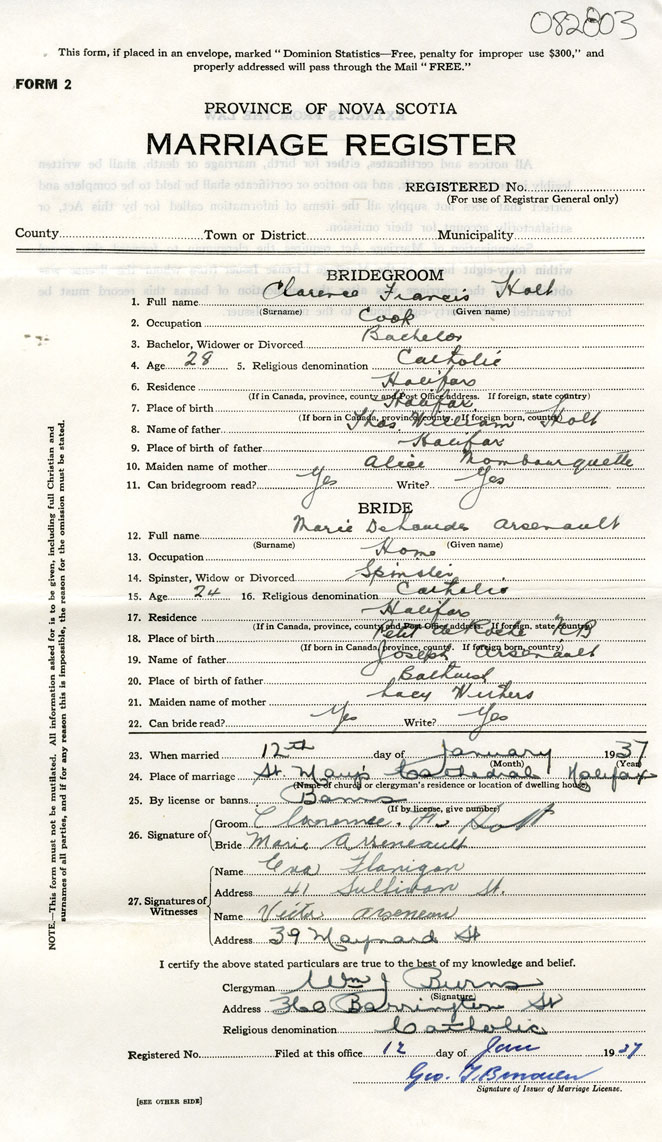 082803
This form, if placed in an envelope, marked "Dominion Statistics—Free, penalty for improper use $300," and
properly addressed will pass through the Mail "FREE."
FORM 2
PROVINCE OF NOVA SCOTIA
MARRIAGE REGISTER
REGISTERED No.
(For use of Registrar General only)
County Town or District Municipality
BRIDEGROOM
1. Full name Clarence Francis Holt
(Surname) (Given name)
2. Occupation Cook
3. Bachelor, Widower or Divorced Bachelor
4. Age 28 5. Religious denomination Catholic
6. Residence Halifax
(If in Canada, province, county and Post Office address. If foreign, state country)
7. Place of birth Halifax
(If born in Canada, province, county. If foreign born, county)
8. Name of father Thos William Holt
9. Place of birth of father Halifax
10. Maiden name of mother Alice Mombourquette
11. Can bridegroom read? Yes Write? Yes
BRIDE
12. Full name Marie Arsenault
(Surname) (Given name)
13. Occupation Home
14. Spinster, Widow or Divorced Spinster
15. Age 24 16. Religious denomination Catholic
17. Residence Halifax
(If in Canada, province, county and Post Office address. If foreign, state country)
18. Place of birth Petit de Roche NB
(If born in Canada, province, county. If foreign born, country)
19. Name of father Joseph Arsenault
20. Place of birth of father Bathurst
21. Maiden name of mother Lucy
22. Can bride read? Yes Write? Yes
23. When married 12th day of January 1937
(Month) (Year)
24. Place of marriage St. Mary's Cathedral Halifax
(Name of church or clergyman's residence or location of dwelling house)
25. By license or banns Banns
(If by license, give number)
26. Signature of Groom Clarence. F. Holt
Bride Marie Arseneault
27. Signatures of Witnesses
Name Eva Flanigan
Address 41 Sullivan St.
Name Victor Arseneau
Address 39 Maynard St
I certify the above stated particulars are true to the best of my knowledge and belief.
Clergyman Wm J Burns
(Signature)
Address 360 Barrington St
Religious denomination Catholic
Registered No. Filed at this office 12 day of Jan 1937
Geo.
Signature of Issuer of Marriage License.
[SEE OTHER SIDE]
NOTE.—This form must not be mutilated. All information asked for is to be given, including full Christian and
surnames of all parties, and if for any reason this is impossible, the reason for the omission must be stated.